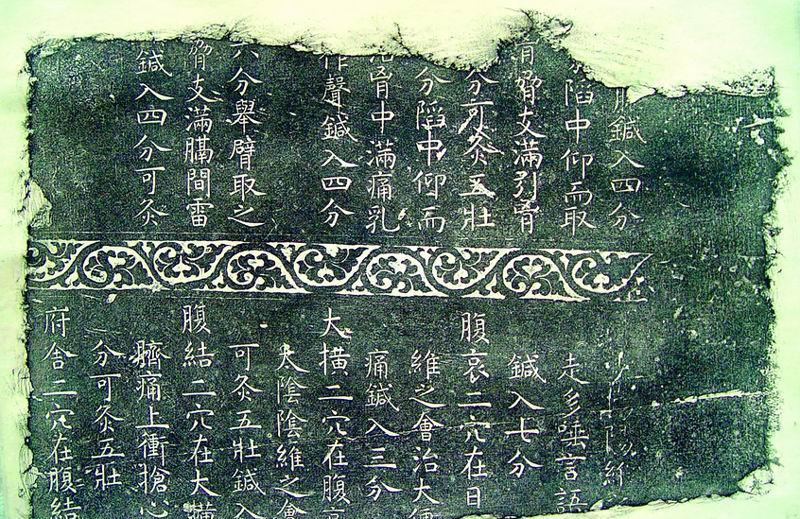 鍼入四分
陷中仰而取
脅支滿引胷
分可灸五壯
分陷中仰而
胷中滿痛乳
作聲鍼入四分
六分舉臂取之
脅支滿膈間雷
鍼入四分可灸
走多唾言語
鍼入七分
腹哀二穴在日
維之會治大便
痛鍼入三分
大橫二穴在腹哀
太陰陰維之會
可灸五壯鍼入
腹結二穴在大橫
臍痛上衝搶心
分可灸五壯
府舍二穴在腹結